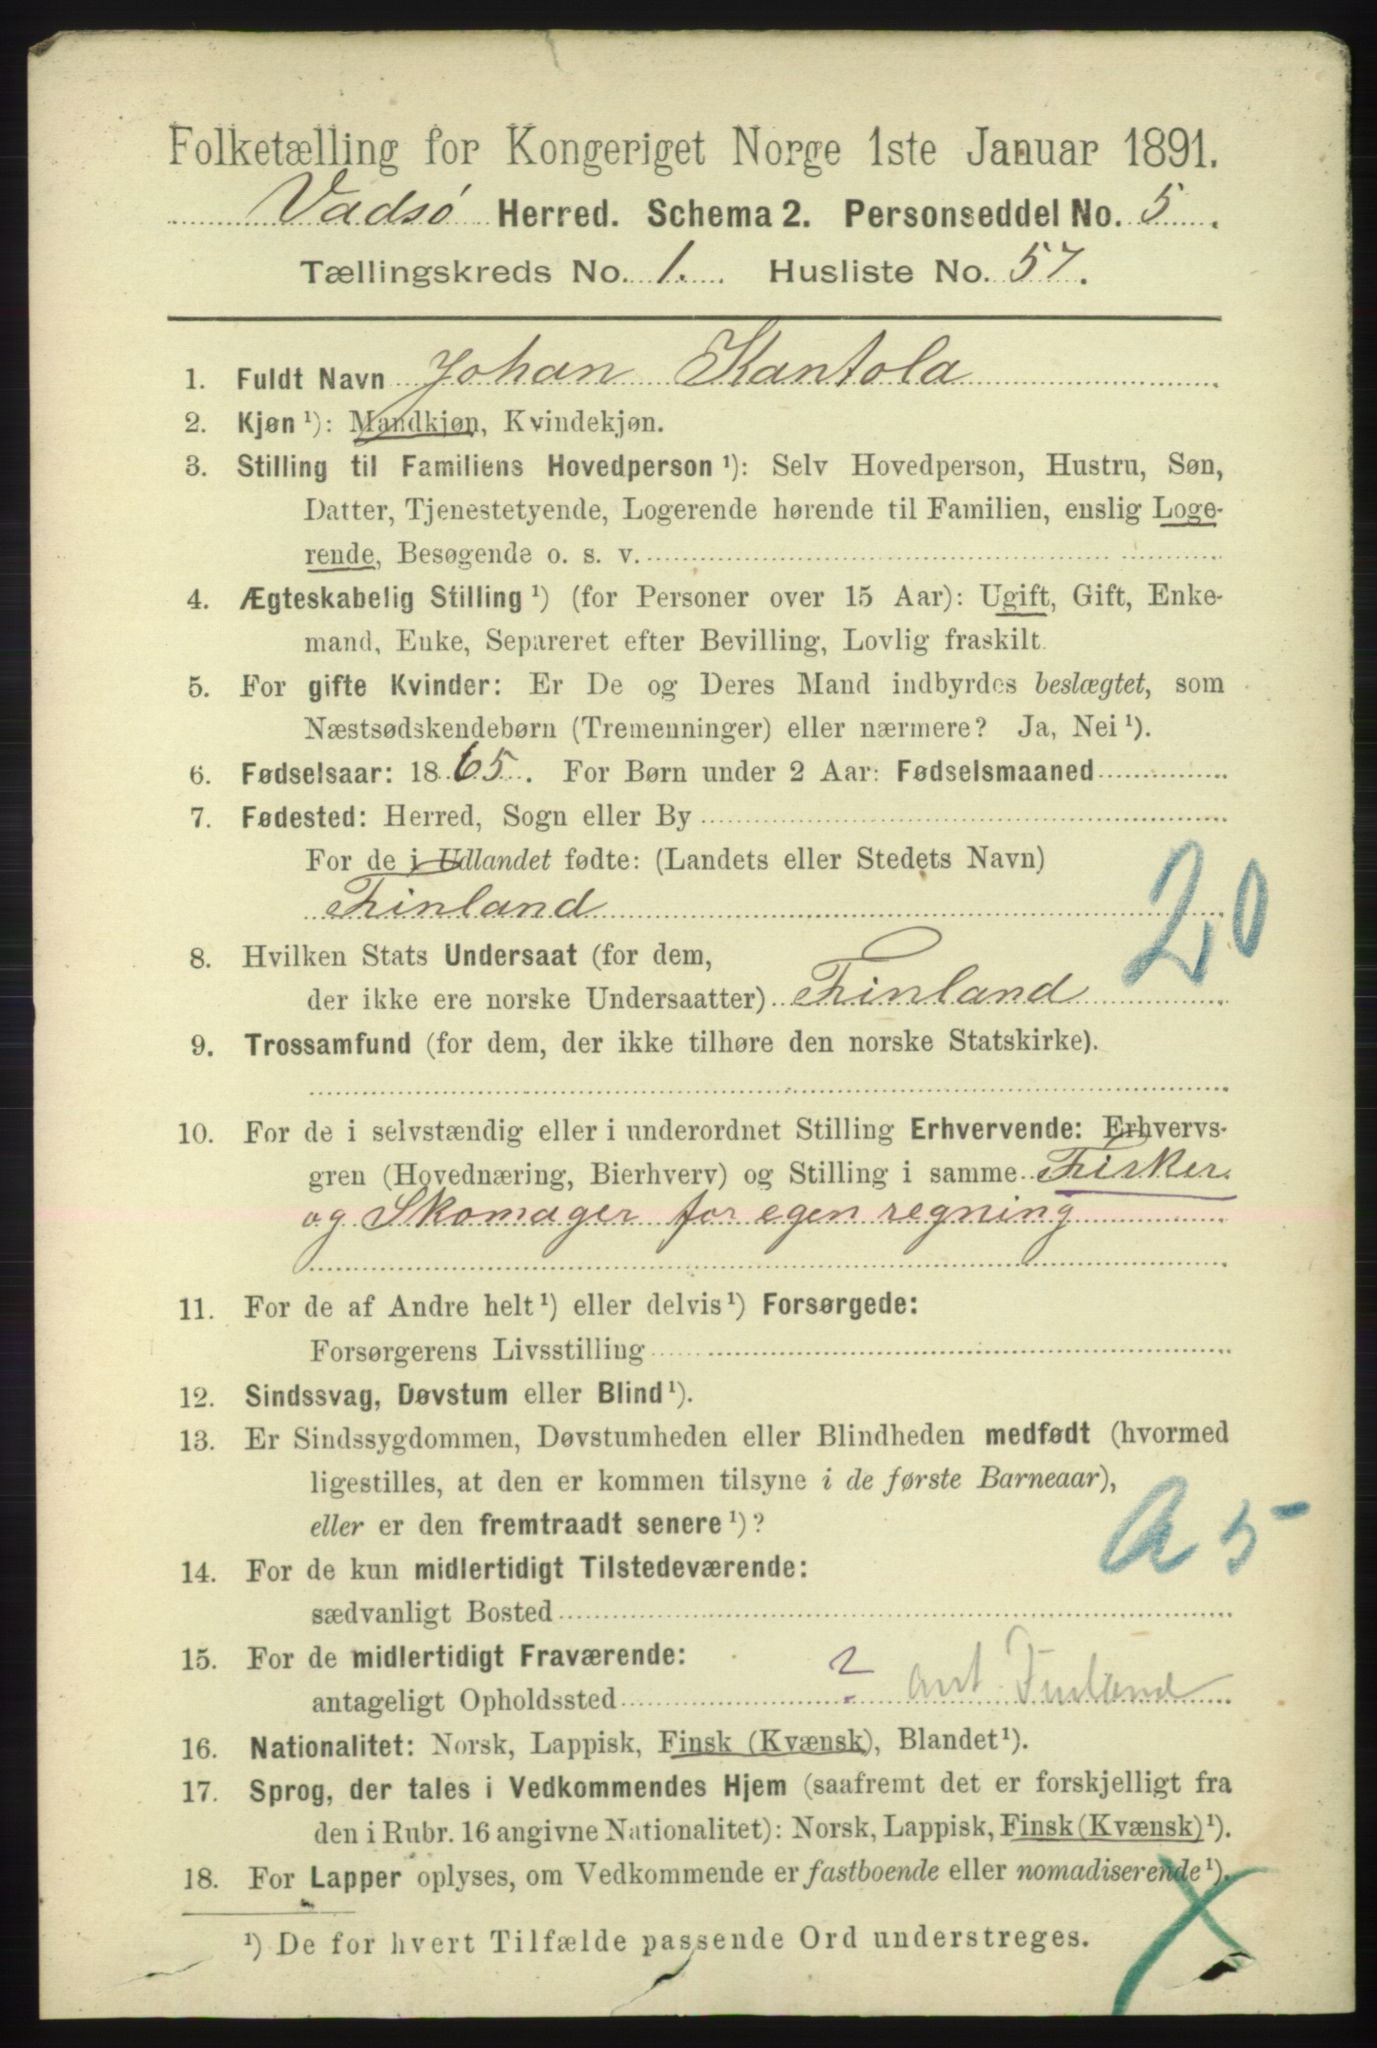 Folketælling for Kongeriget Norge 1ste Januar 1891.
Vadsø Herred. Schema 2. Personseddel No. 5.
Tællingskreds No. 1. Husliste No. 57.
1. Fuldt Navn Johan Kantola
2. Kjøn ¹): Mandkjøn, Kvindekjøn.
3. Stilling til Familiens Hovedperson ¹): Selv Hovedperson, Hustru, Søn,
Datter, Tjenestetyende, Logerende hørende til Familien, enslig Loge-
rende, Besøgende o. s. v.
4. Ægteskabelig Stilling ¹) (for Personer over 15 Aar): Ugift, Gift, Enke-
mand, Enke, Separeret efter Bevilling, Lovlig fraskilt.
5. For gifte Kvinder: Er De og Deres Mand indbyrdes beslægtet, som
Næstsødskendebørn (Tremenninger) eller nærmere? Ja, Nei ¹).
6. Fødselsaar: 1865. For Børn under 2 Aar: Fødselsmaaned
7. Fødested: Herred, Sogn eller By
For de i Udlandet fødte: (Landets eller Stedets Navn)
Finland
20
8. Hvilken Stats Undersaat (for dem,
der ikke ere norske Undersaatter) Finland
9. Trossamfund (for dem, der ikke tilhøre den norske Statskirke).
10. For de i selvstændig eller i underordnet Stilling Erhvervende: Erhvervs-
gren (Hovednæring, Bierhverv) og Stilling i samme Fisker
og Skomager for egen regning
11. For de af Andre helt ¹) eller delvis ¹) Forsørgede:
Forsørgerens Livsstilling
12. Sindssvag, Døvstum eller Blind ¹).
13. Er Sindssygdommen, Døvstumheden eller Blindheden medfødt (hvormed
ligestilles, at den er kommen tilsyne i de første Barneaar),
eller er den fremtraadt senere ¹)?
A 5
14. For de kun midlertidigt Tilstedeværende:
sædvanligt Bosted
15. For de midlertidigt Fraværende:
antageligt Opholdssted ? ant. Finland
16. Nationalitet: Norsk, Lappisk, Finsk (Kvænsk), Blandet ¹).
17. Sprog, der tales i Vedkommendes Hjem (saafremt det er forskjelligt fra
den i Rubr. 16 angivne Nationalitet): Norsk, Lappisk, Finsk (Kvænsk) ¹).
18. For Lapper oplyses, om Vedkommende er fastboende eller nomadiserende ¹).
¹) De for hvert Tilfælde passende Ord understreges.